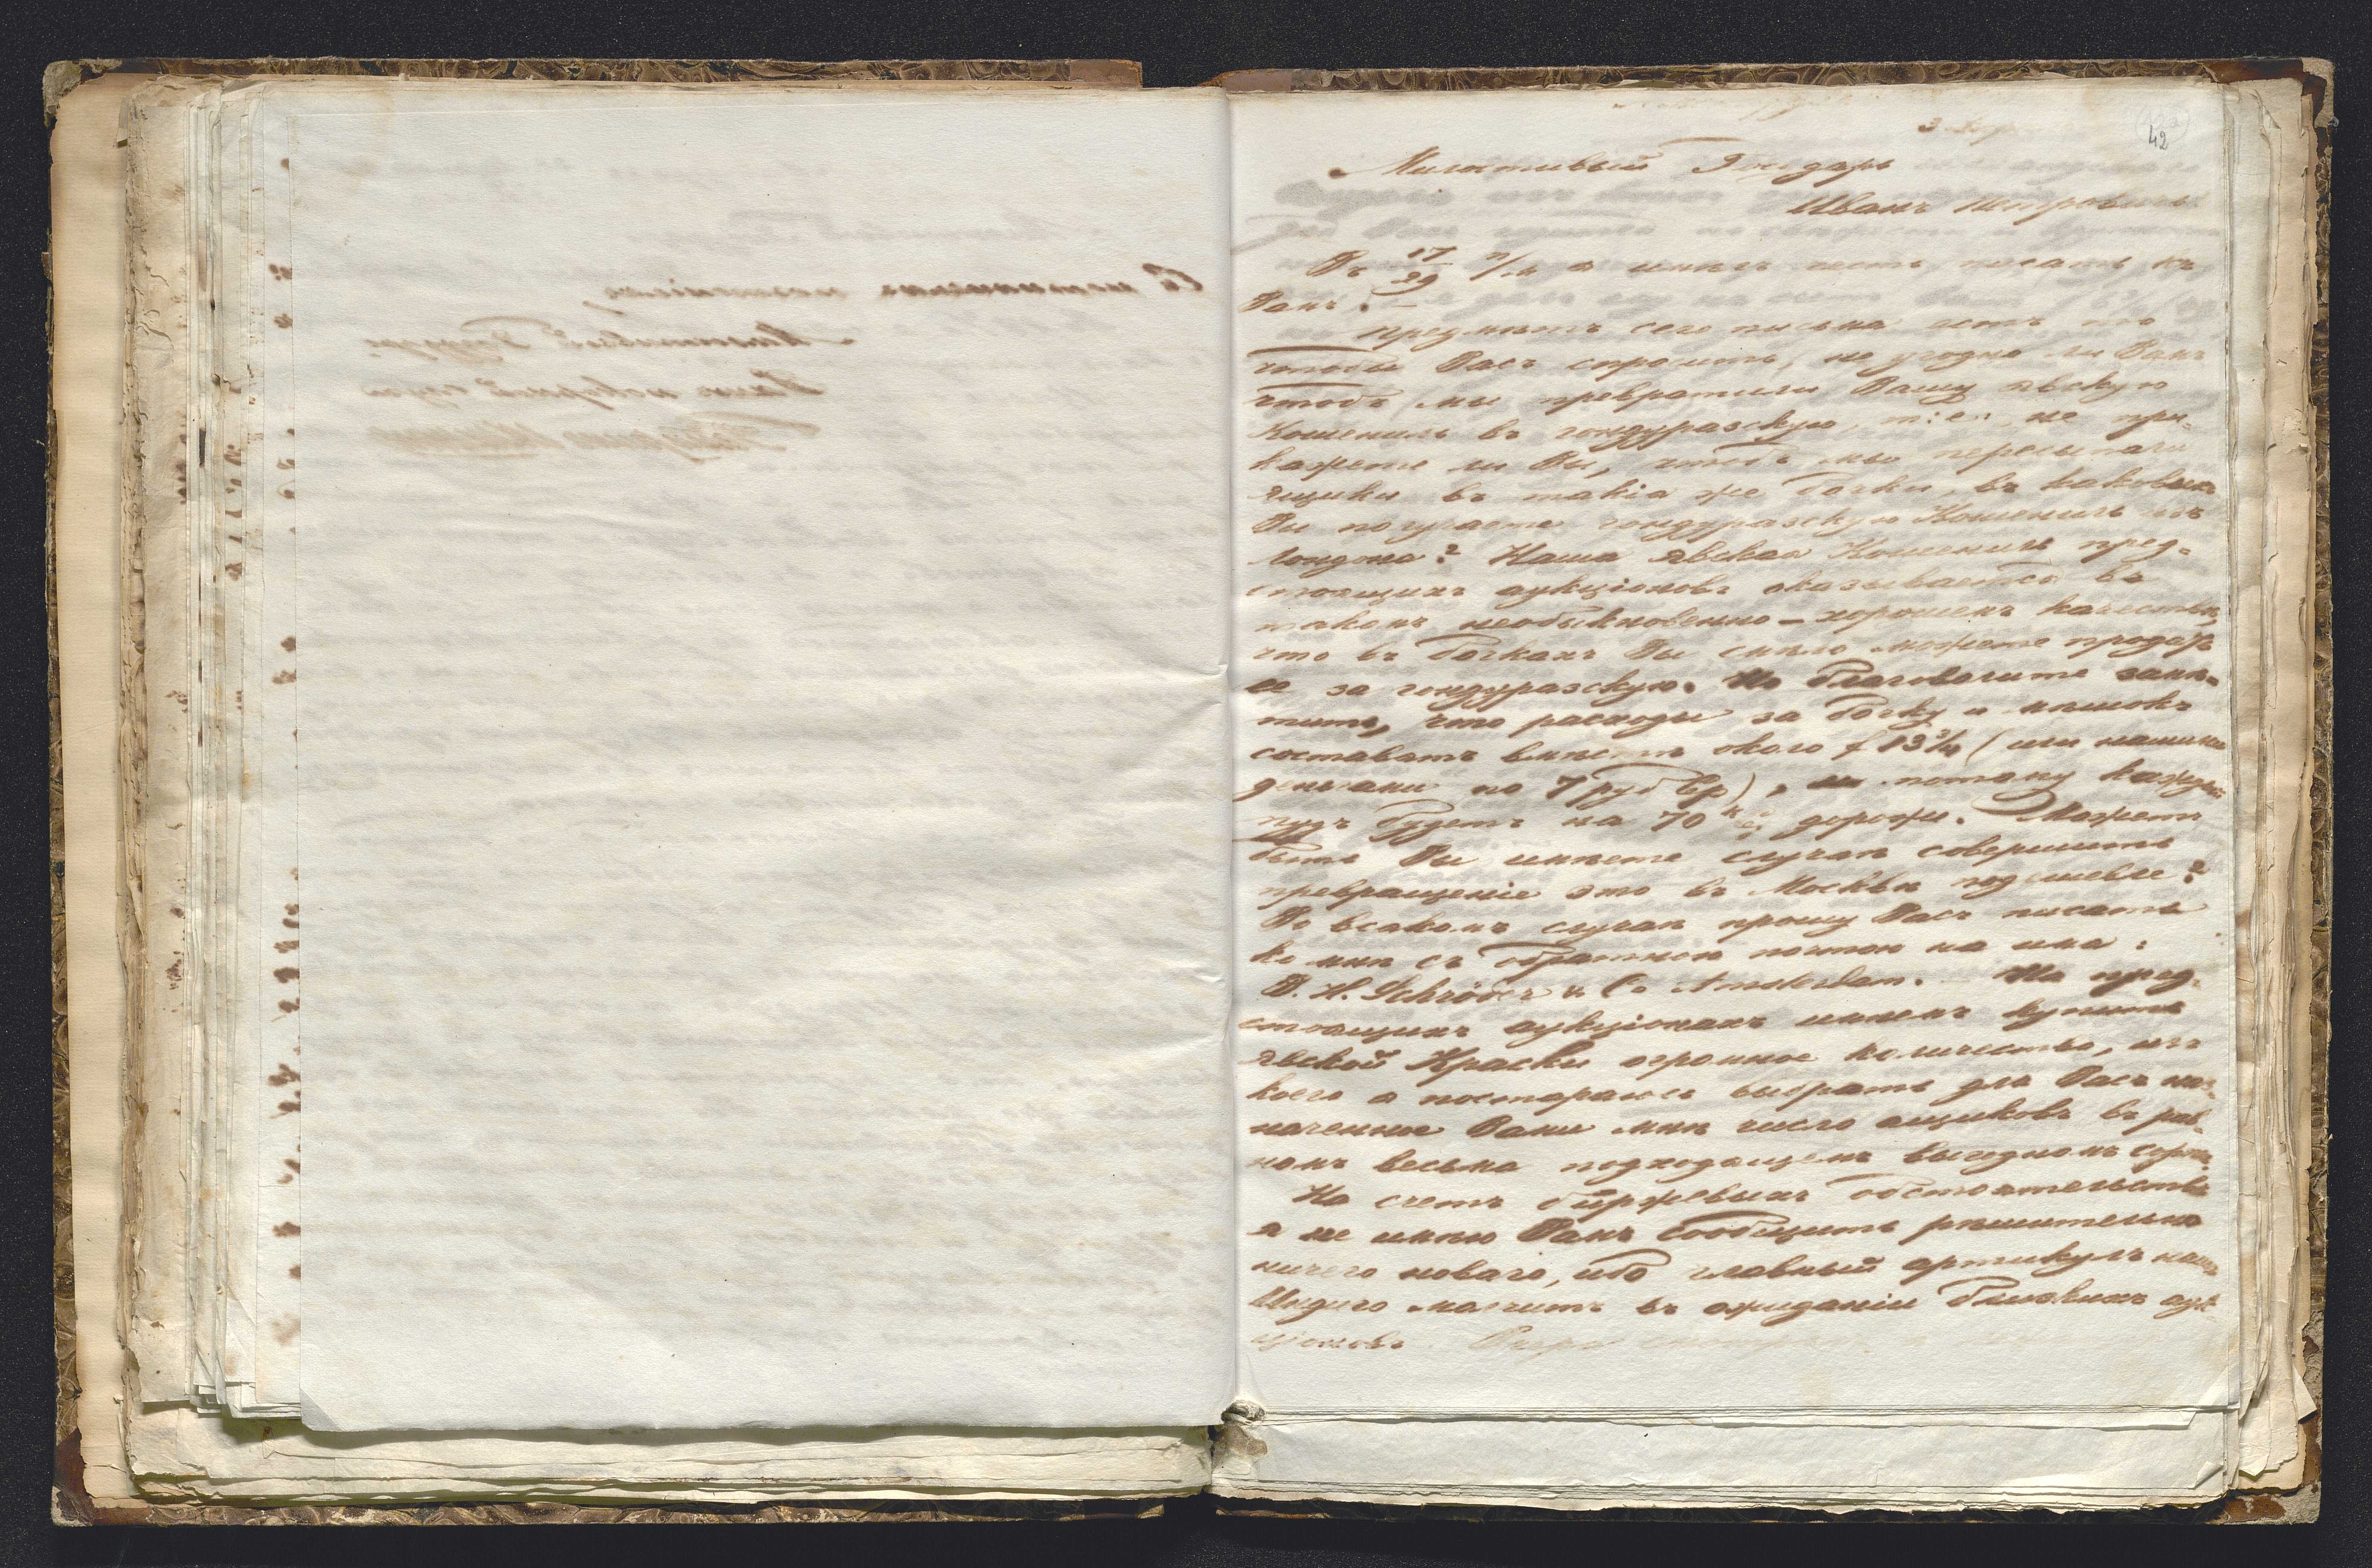 42
Милостивый Государь
Иванъ Петровичъ
Въ 17/29 п/м я имѣлъ честь писать къ
Вамъ. –
Предметъ сего письма есть то
чтобы Васъ спросить, не угодно ли Вамъ
чтобъ мы превратили Вашу явскую
Кошениль въ гондураскую, т: е:, не при-
кажете ли Вы, чтобъ мы пересыпали
ящики въ такія же бочки, въ каковыхъ
Вы получаете гондураскую Кошениль изъ
Лондона? Наша явская Кошениль пред-
стоящихъ аукціоновъ оказывается въ
такомъ необыкновенно – хорошемъ качествѣ,
что въ бочкахъ Вы смѣло можете продать
ее за гондураскую. Но благоволите замѣ-
тить, что расходы за бочку и мешокъ
составятъ вмѣстѣ около f 13 3/4 (или нашими
деньгами по 7 руб Ср), потому каждый
пудъ будетъ на 70 к дороже. Можетъ
быть Вы имѣете случая совершить
превращеніе это въ Москвѣ подешевле?
Во всякомъ случаѣ прошу Васъ писать
ко мнѣ съ обратною почтою на имя:
B. H. Schröder & Co Amsterdam. – На пред-
стоящихъ аукціонахъ имѣемъ купить
явской Краски огромное количество, изъ
коего я постараюсь выбрать для Васъ наз-
наченное Вами мнѣ число ящиковъ въ рав-
номъ весьма подходящемъ выгодномъ сортѣ.
На счетъ биржевыхъ обстоятельствъ
я не имѣю Вамъ сообщить рѣшительно
ничего новаго, ибо главный артикулъ нашъ
Индиго молчитъ въ ожиданіи близкихъ аук-
ціоновъ.
Съ истиннымъ почтеніемъ
Милостивый Государь
Вашъ покорный слуга